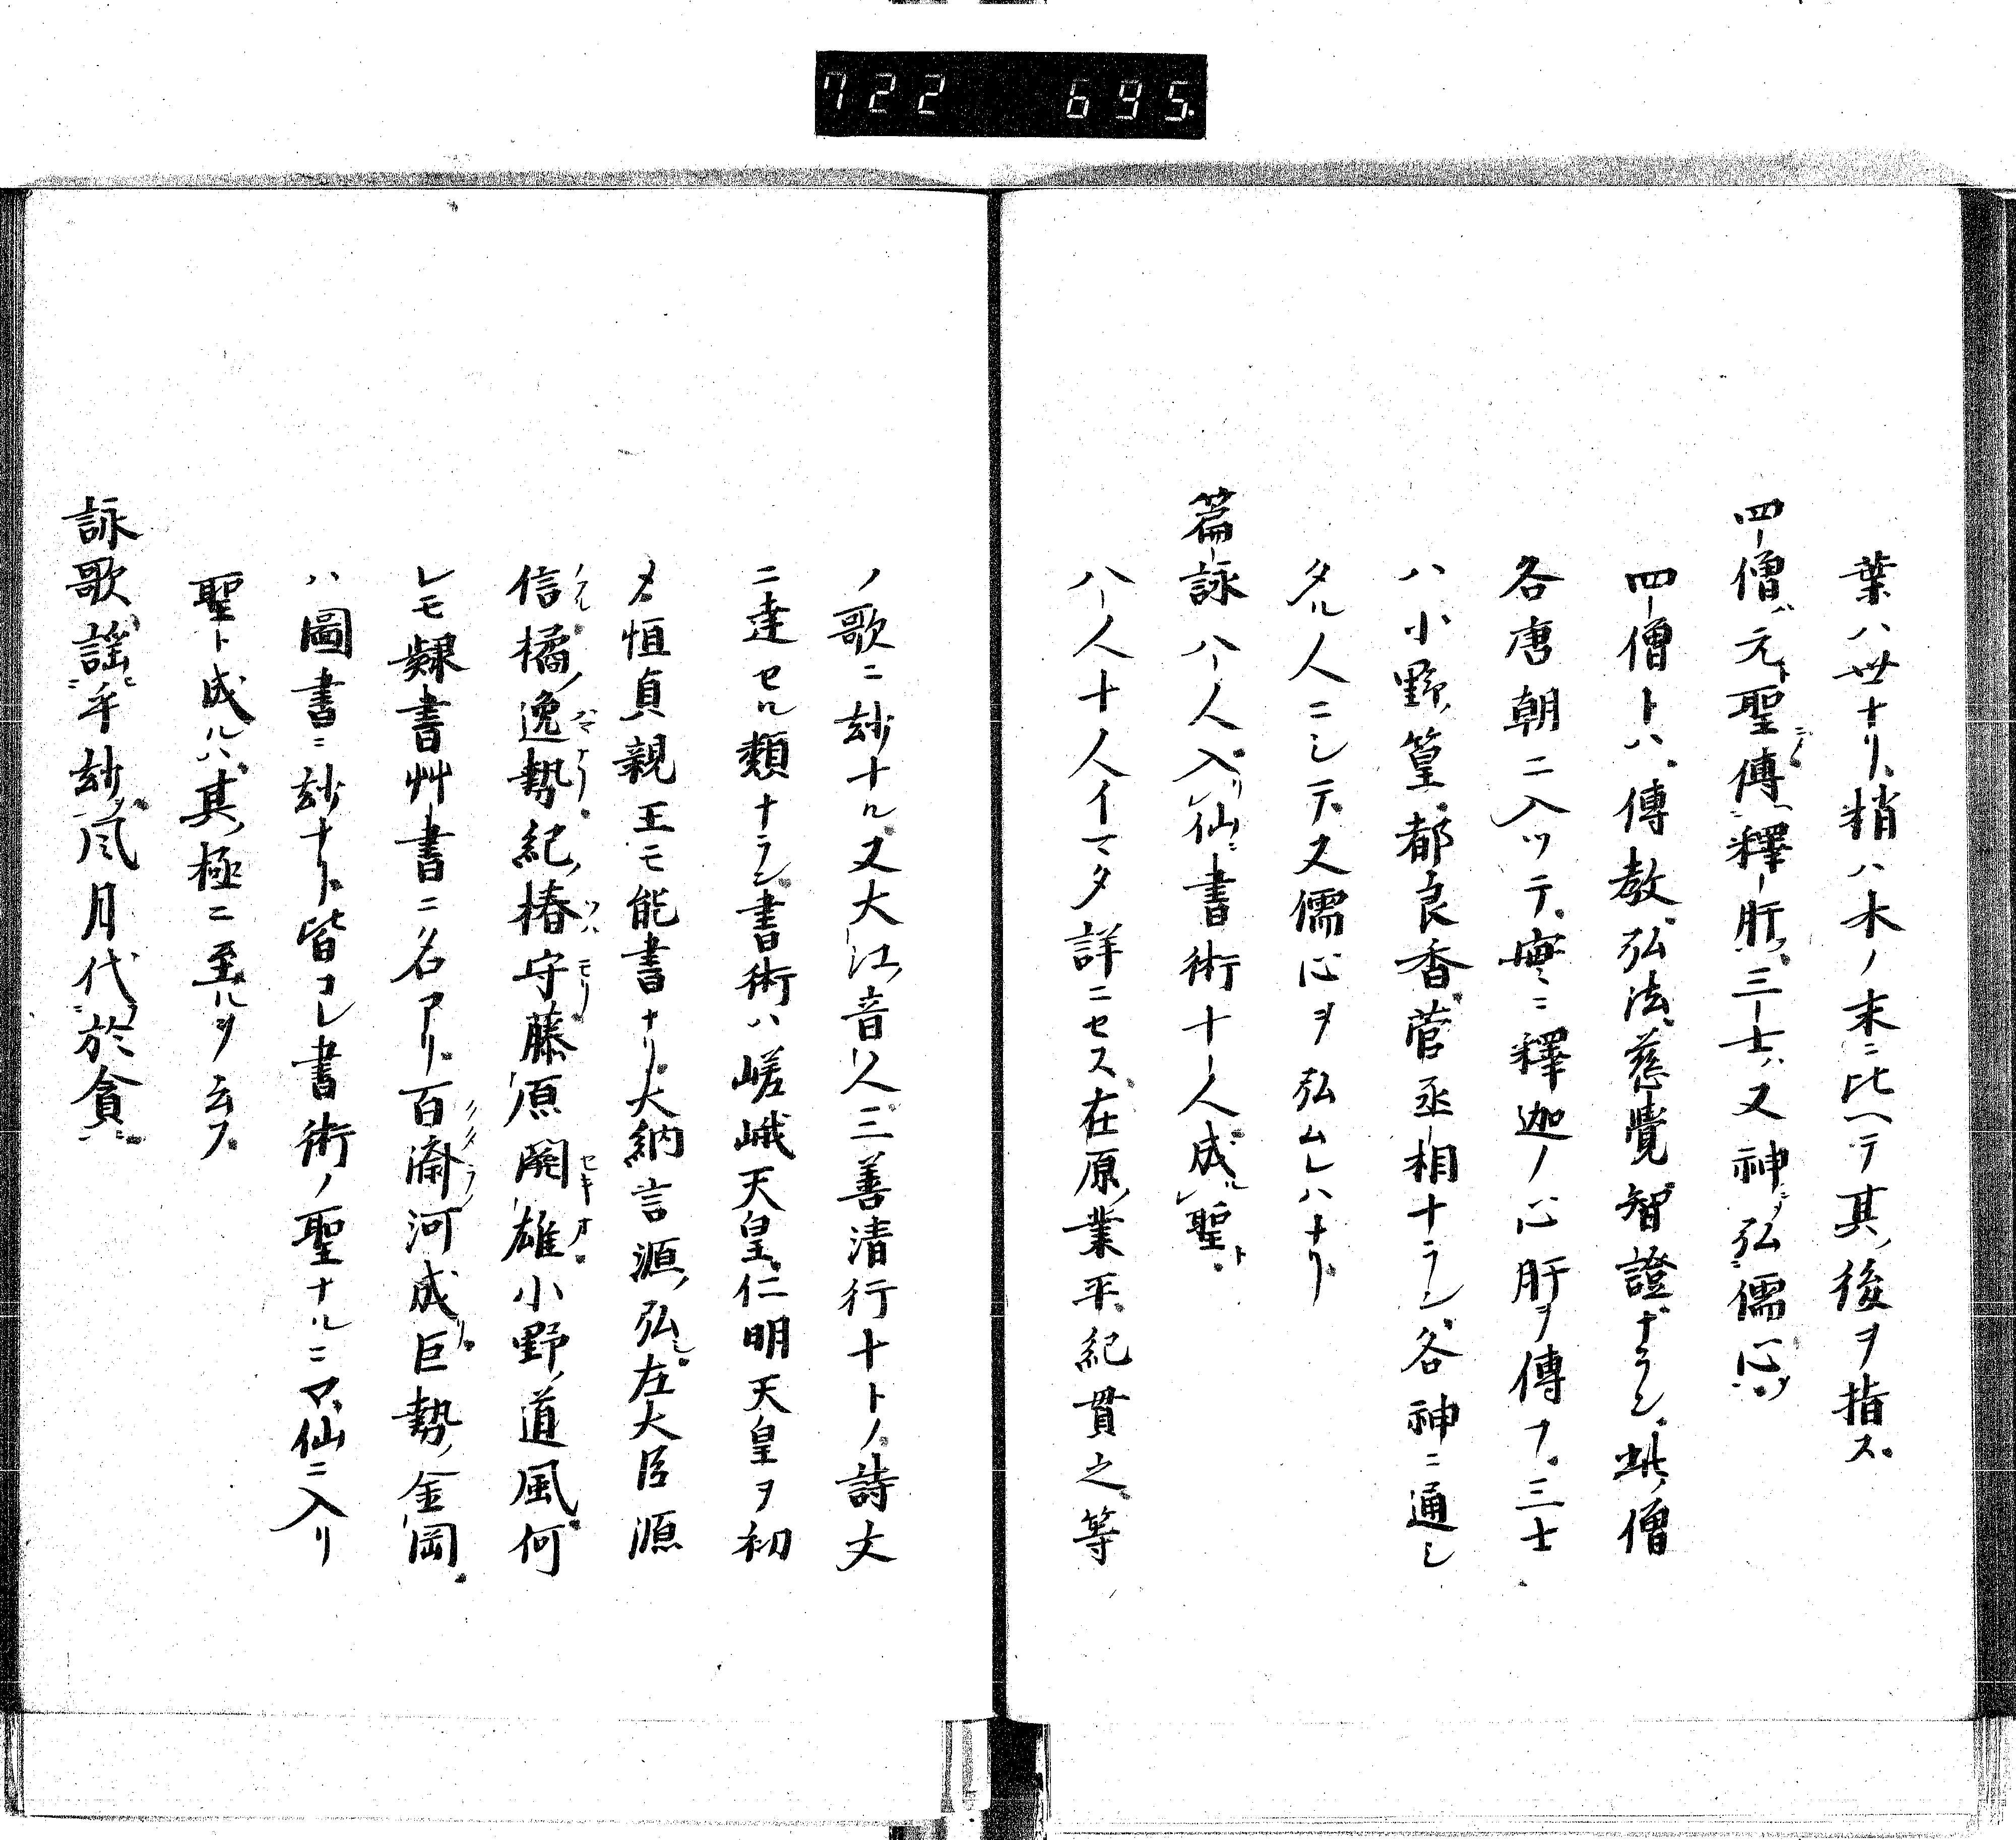 722 695.
葉ハ世ナリ、梢ハ木ノ末ニ比ヘテ其後ヲ指ス
四僧ハ元ト聖傳釋肝三士ハ又神弘儒心
四僧トハ傳教弘法慈覺智證ナラン此僧
各唐朝ニ入ツテ實ニ釋迦ノ心肝ヲ傳フ三士
ハ小野篁都良香菅丞相ナラン各神ニ通シ
タル人ニシテ又儒心ヲ弘ムレハナリ
篇詠八人入リ仙ニ書術十人成ル聖ト
八人十人イマタ詳ニセス在原業平紀貫之等
ノ歌ニ玅ナル又大江音人三善清行ナトノ詩文
ニ達セル類ナラン書術ハ嵯峨天皇仁明天皇ヲ初
メ恒貞親王モ能書ナリ大納言源弘左大臣源
信橘逸勢紀椿守藤原関雄小野道風何
レモ隸書艸書ニ名アリ百濟河成巨勢金岡
ハ圖書ニ玅ナリト皆コレ書術ノ聖ナルニヤ仙ニ入リ
聖ト成ルハ其極ニ至ルヲ云フ
詠歌謡乎玅風月代於貪